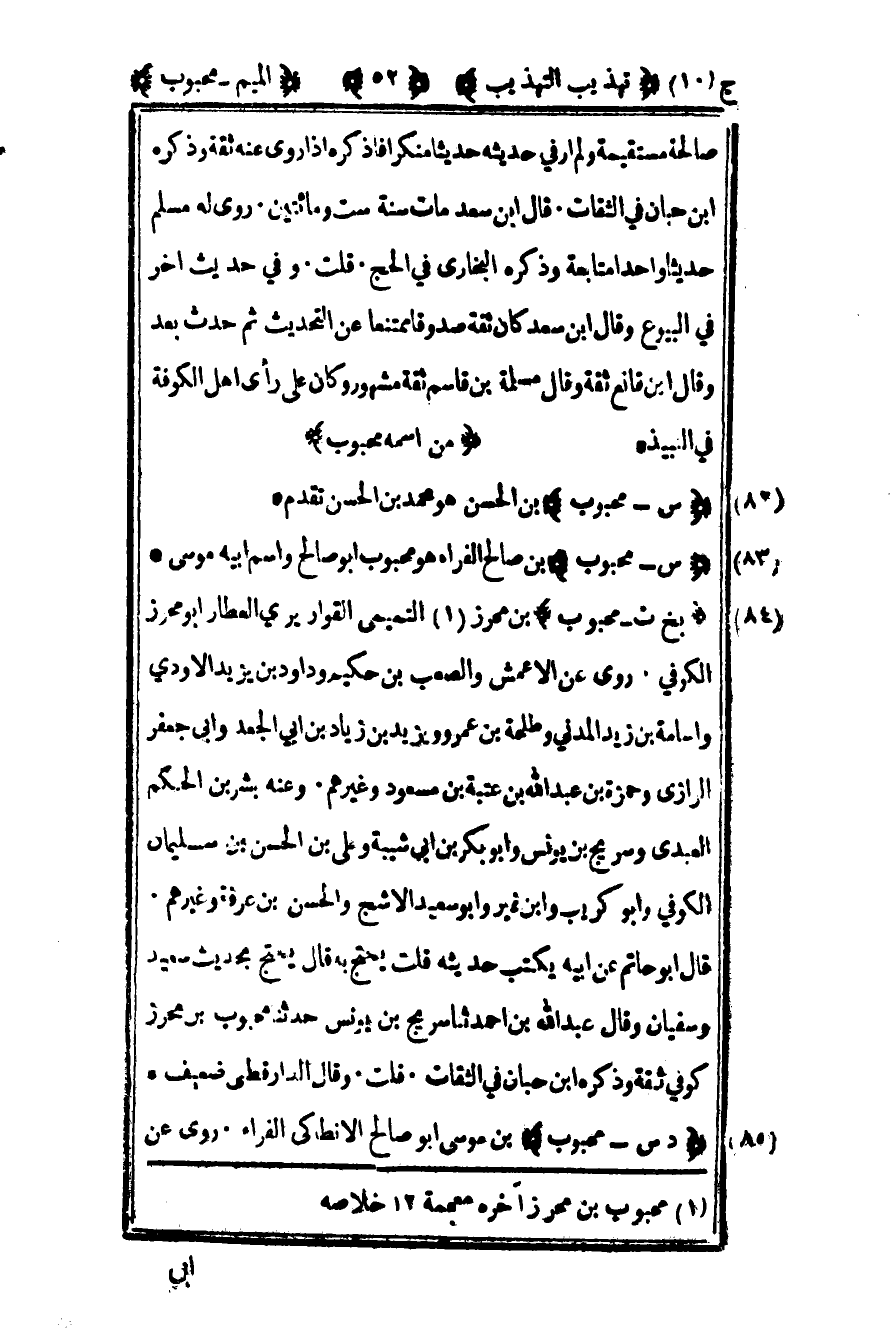 ج (١٠) ﴿ تهذيب التهذيب ﴾ ﴿ ٥٢ ﴾ ﴿ الميم - محبوب ﴾
صالحة مستقيمة ولم ار في حديثه حديثا منكرا فاذكره اذا روى عنه ثقة وذكره
ابن حبان في الثقات ٠ قال ابن سعد مات سنة ست ومائتين ٠ روى له مسلم
حديثا واحدا متابعة وذكره البخارى في الحج ٠ قلت ٠ و في حديث اخر
في البيوع وقال ابن سعد كان ثقة صدوقا ممتنعا عن التحديث ثم حدث بعد
وقال ابن قانع ثقة وقال مسلمة بن قاسم ثقة مشهور وكان على رأى اهل الكوفة
في النبيذ * ﴿ من اسمه محبوب ﴾
(٨٢) ﴿ س - محبوب ﴾ بن الحسن هو محمد بن الحسن تقدم *
(٨٣) ﴿ س - محبوب ﴾ بن صالح الفراء هو محبوب ابو صالح واسم ابيه موسى *
(٨٤) ﴿ بخ ت - محبوب ﴾ بن محرز (١) التميمى القواريري العطار ابو محرز
الكوفي ٠ روى عن الاعمش والصعب بن حكيم وداود بن يزيد الاودي
واسامة بن زيد المدني وطلحة بن عمرو ويزيد بن زياد بن ابي الجعد وابى جعفر
الرازى وحمزة بن عبدالله بن عتبة بن مسعود وغيرهم ٠ وعنه بشر بن الحكم
العبدى وسريج بن يونس وابوبكر بن ابي شيبة وعلى بن الحسن بن سليمان
الكوفي وابو كريب وابن نمير وابوسعيد الاشج والحسن بن عرفة وغيرهم ٠
قال ابوحاتم عن ابيه يكتب حديثه قلت يحتج به قال يحتج بحديث سعيد
وسفيان وقال عبدالله بن احمد ثنا سريج بن يونس حدثنا محبوب بن محرز
كوفي ثقة وذكره ابن حبان في الثقات ٠ قلت ٠ وقال الدارقطى ضعيف *
(٨٥) ﴿ د س - محبوب ﴾ بن موسى ابو صالح الانطاكى الفراء ٠ روى عن
(١) محبوب بن محرز آخره معجمة ١٢ خلاصه
ابي